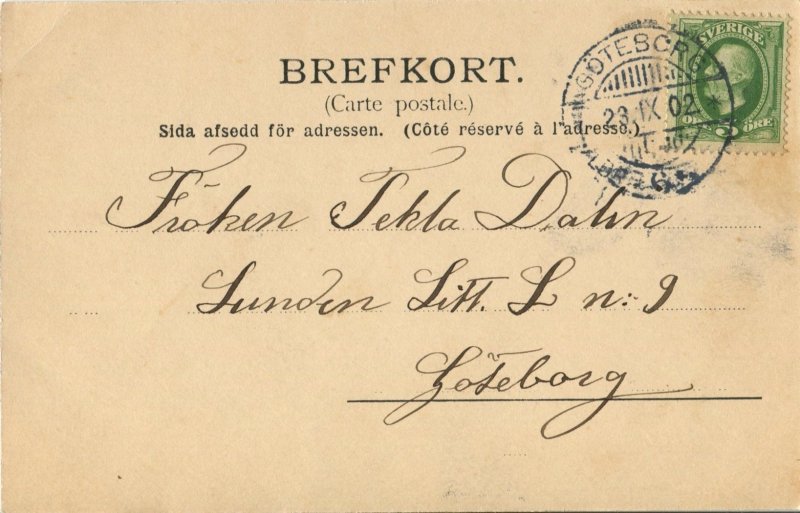 BREFKORT.
(Carte postale.)
Sida afsedd för adressen. (Côté réservé à l'adresse.)
GÖTEBORG
23 IX 02
SVERIGE
5 ÖRE
Fröken Tekla Dahn
Lunden Litt. L n: 9
Göteborg